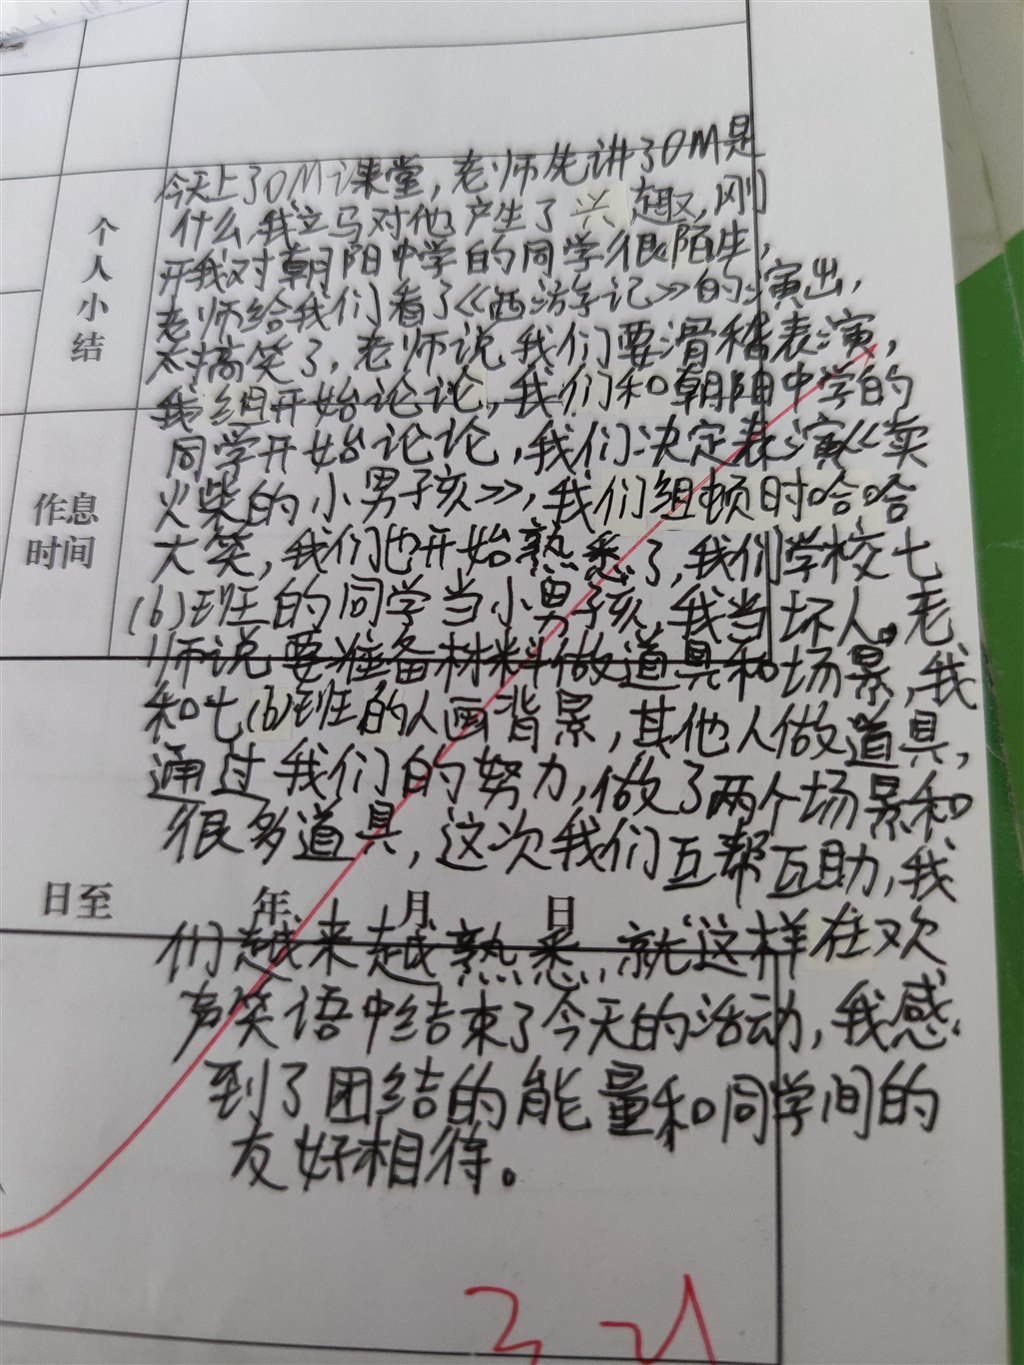 个人小结
作息时间
今天上了OM课堂，老师先讲了OM是
什么，我立马对他产生了兴趣，刚
开我对朝阳中学的同学很陌生，
老师给我们看了《西游学记》的演出，
太搞笑了，老师说我们要滑稽表演，
我组开始论论，我们和朝阳中学的
同学开始论论，我们决定表演《卖
火柴的小男子孩》，我们组顿时哈哈
大笑，我们也开始熟悉了，我们学校七
(6)班的同学当小男子孩，我当坏人。老
师说要准备材料做道具和场景，我
和七(6)班的人画背景，其他人做道具，
通过我们的努力，做了两个场景和
很多道具，这次我们互帮互助，我
日至 年 月 日
们越来越熟悉，就这样在欢
声笑语中结束了今天的活动，我感
到了团结的能量和同学间的
友好相待。